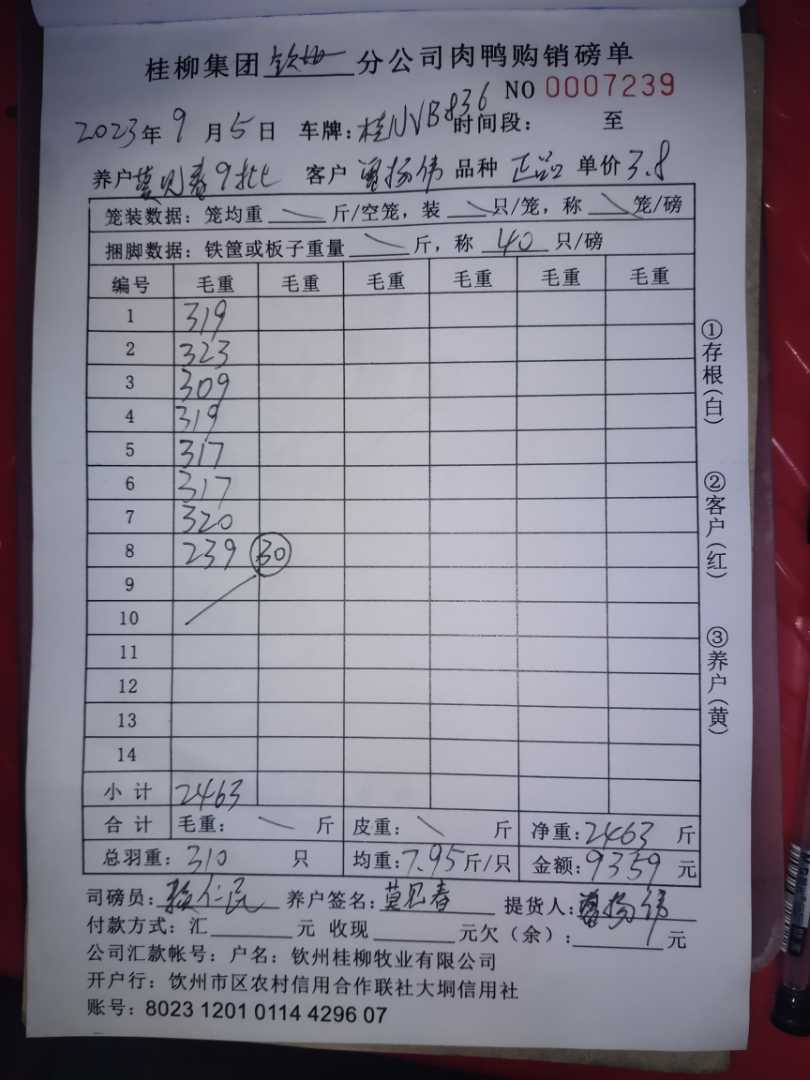 桂柳集团 钦州 分公司肉鸭购销磅单
NO 0007239
2023年 9 月 5 日 车牌：桂NVB836 时间段： 至
养户 莫见春9批 客户 曾扬伟 品种 正品 单价 3.8
笼装数据：笼均重 斤/空笼，装 只/笼，称 笼/磅
捆脚数据：铁筐或板子重量 斤，称 40 只/磅
编号 毛重 毛重 毛重 毛重 毛重 毛重
1 319
2 323
3 309
4 319
5 317
6 317
7 320
8 239 30
9
10
11
12
13
14
小 计 2463
合 计 毛重： 斤 皮重： 斤 净重：2463 斤
总羽重：310 只 均重：7.95斤/只 金额：9359 元
司磅员： 养户签名：莫见春 提货人：曾扬伟
付款方式：汇 元 收现 元欠（余）： 元
公司汇款帐号：户名：钦州桂柳牧业有限公司
开户行：钦州市区农村信用合作联社大垌信用社
账号：8023 1201 0114 4296 07
①存根(白)
②客户(红)
③养户(黄)